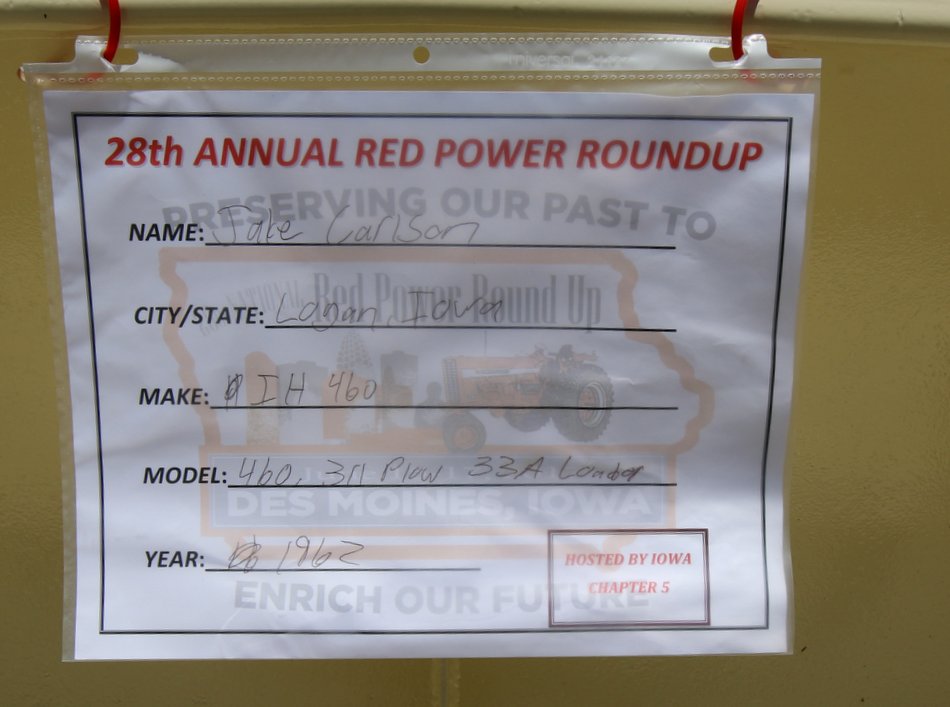 universal
28th ANNUAL RED POWER ROUNDUP
PRESERVING OUR PAST TO
NAME: Jake Carlson
Red Power Round Up
CITY/STATE: Logan, Iowa
MAKE: IH 460
MODEL: 460, 311 Plow 33A Loader
DES MOINES, IOWA
YEAR: 1962
HOSTED BY IOWA
CHAPTER 5
ENRICH OUR FUTURE